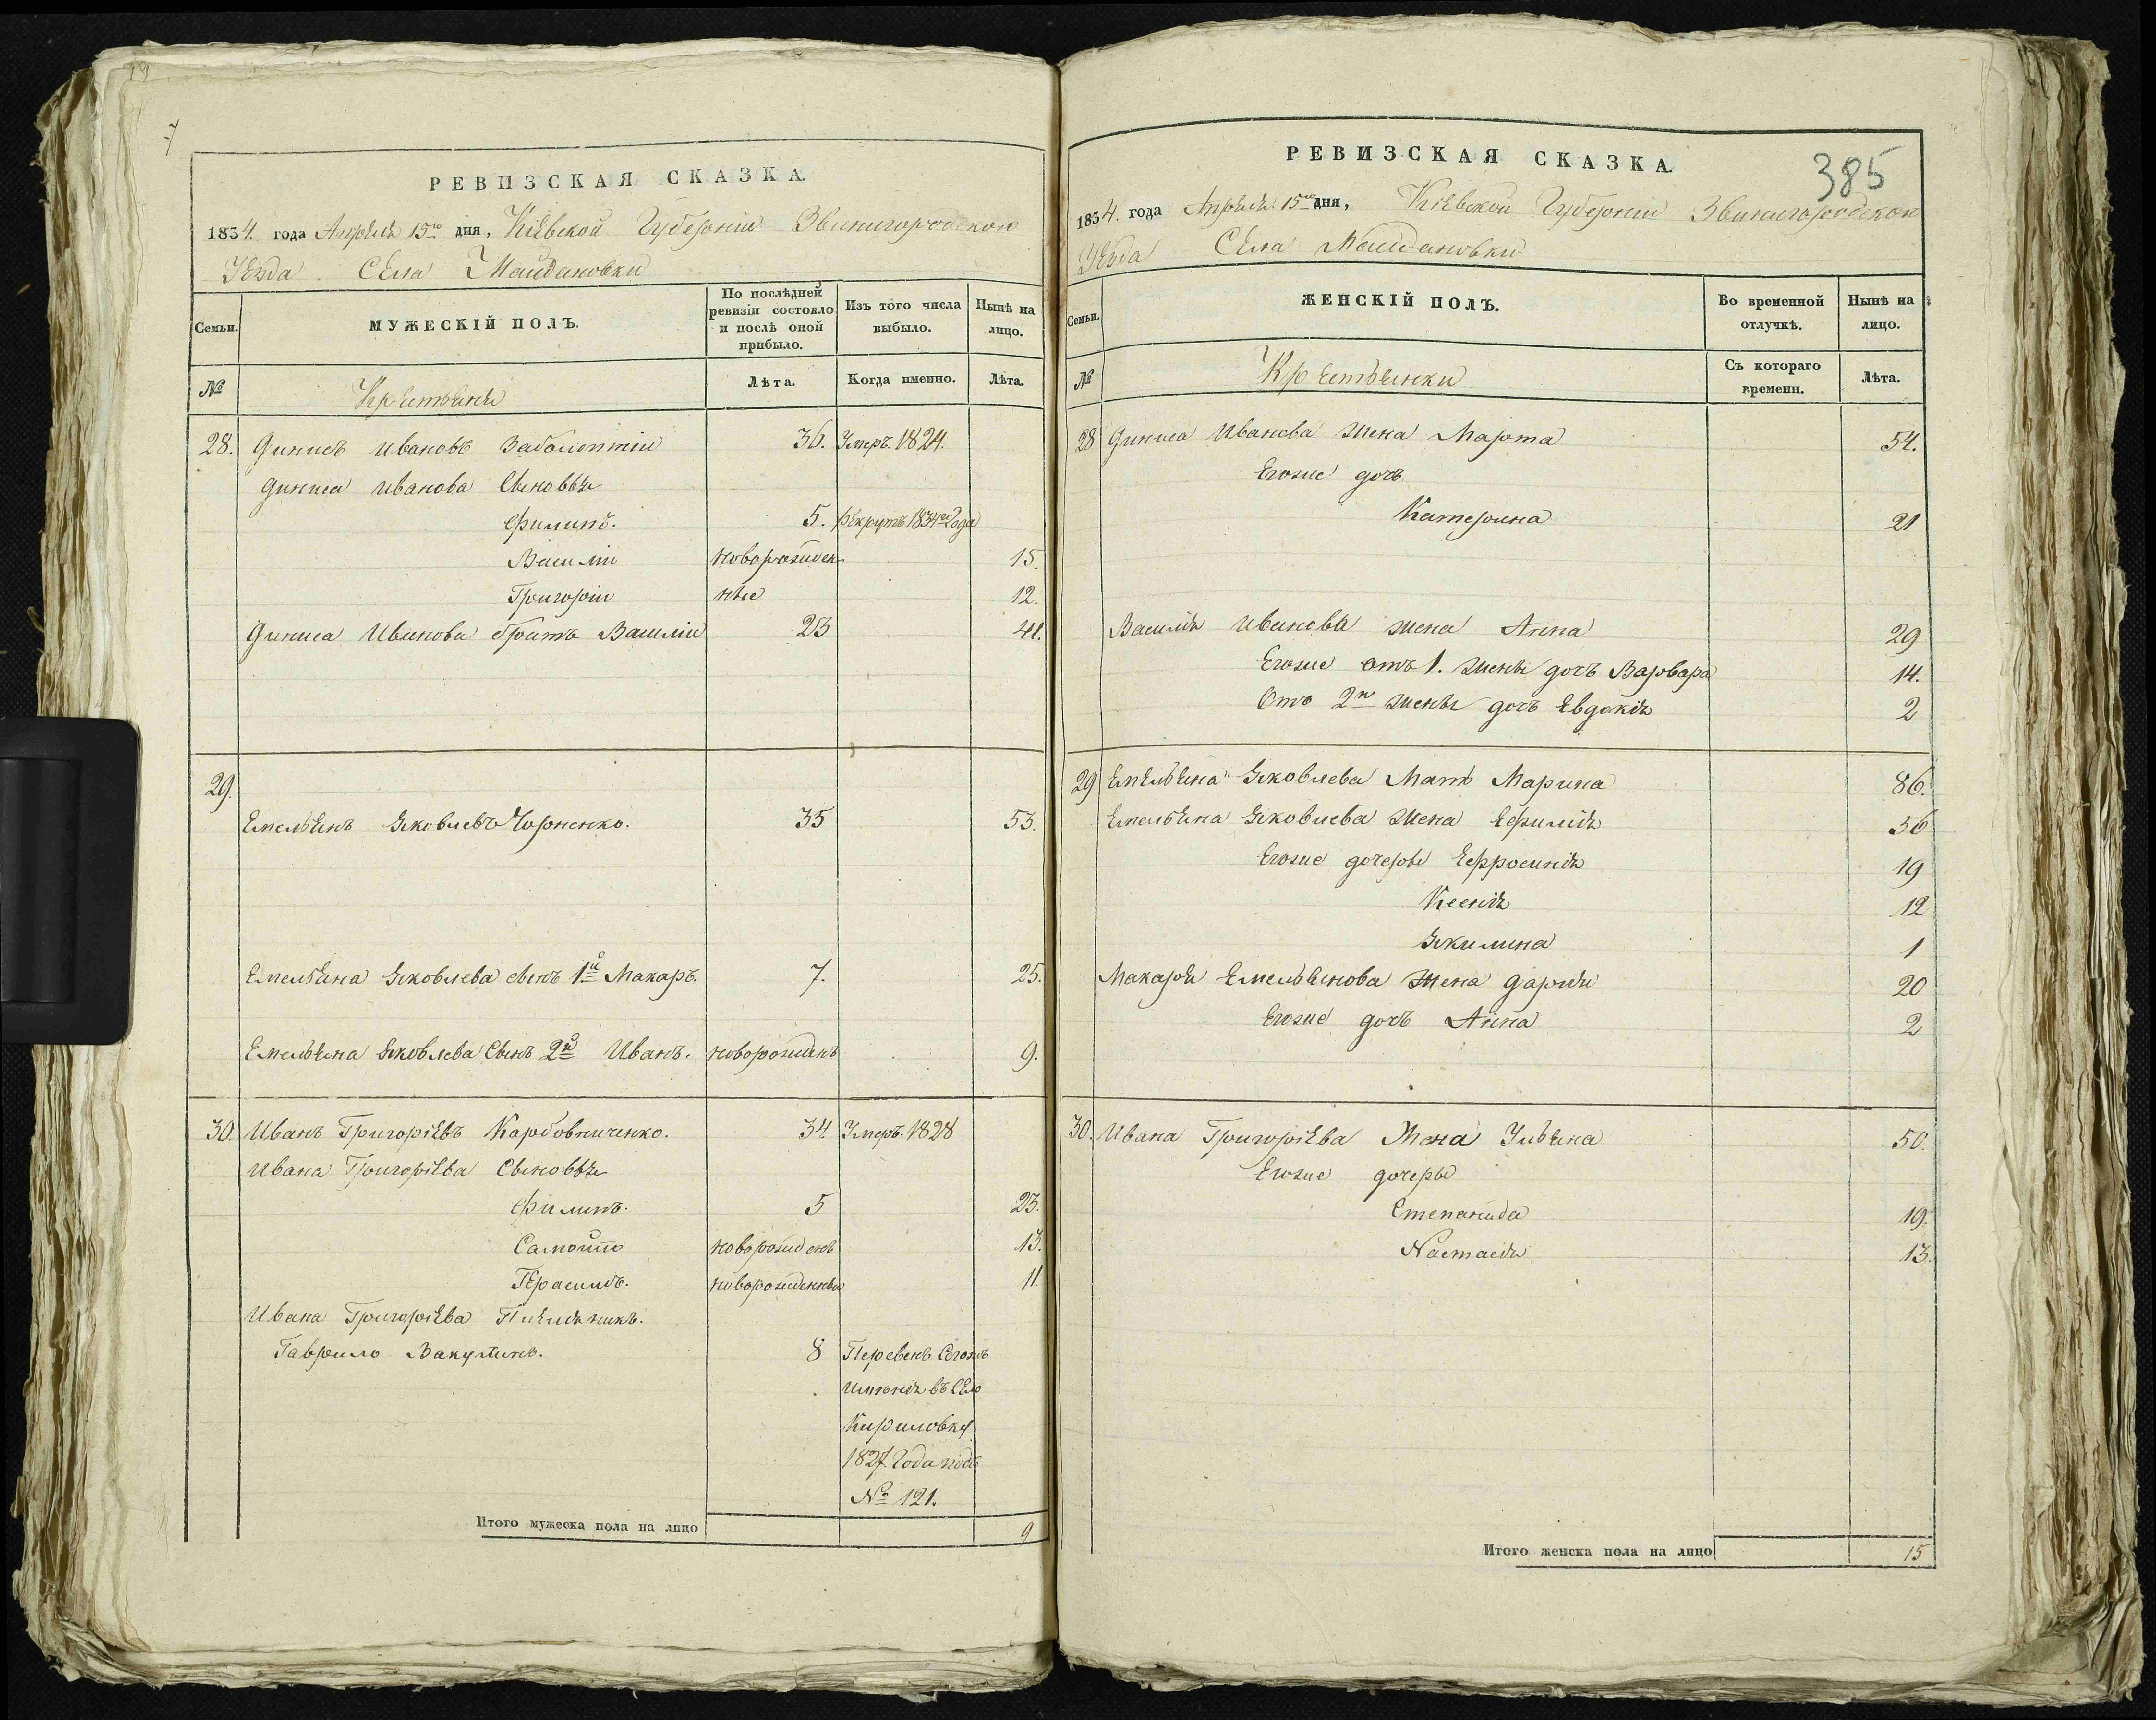 7
РЕВИЗСКАЯ СКАЗКА.
1834. года Апреля 15го дня, Кіевской Губерніи Звинигородской
Уезда Села Майдановки
Семьи.
МУЖЕСКІЙ ПОЛЪ.
По послѣдней ревизіи состояло и послѣ оной прибыло.
Изъ того числа выбыло.
Нынѣ на лицо.
№
Крестьяне
Лѣта.
Когда именно.
Лѣта.
28. Динисъ Ивановъ 36. Умеръ. 1824.
Диниса Иванова Сыновья
Филипъ. 5. рекрутъ 1834го года
Василіи новорожден 15.
Григоріи ные 12.
Диниса Иванова братъ Василіи 23 41.
29.
Емельянъ Яковлевъ Чорненко. 35 53.
Емельяна Яковлева сынъ 1й Макаръ. 7. 25.
Емельяна Яковлева Сынъ 2й Иванъ. новорожденъ 9.
30 Иванъ Григоріевъ Карбовниченко. 34. Умеръ. 1828
Ивана Григоріева Сыновья
Филипъ. 5 23.
Самойло новорожденъ 13.
Герасимъ. новорожденны 11.
Ивана Григоріева Племяникъ.
Гаврило Вакулинъ. 8 Переведенъ
именія въ Село
Кириловку
1827 Года подъ
№ 121.
Итого мужеска пола на лицо 9
РЕВИЗСКАЯ СКАЗКА.
385
1834. года Апреля 15го дня, Кіевской Губерніи Звинигородской
Уезда Села Майдановки
Семьи.
ЖЕНСКІЙ ПОЛЪ.
Во временной отлучкѣ.
Нынѣ на лицо.
№
Крестьянки
Съ котораго времени.
Лѣта.
28 Диниса Иванова жена Марта 54.
Егоже дочь
Катерина 21
Василія Иванова жена Анна 29
Егоже отъ 1. жены дочъ Варвара 14.
Отъ 2й жены дочъ Евдокія 2
29 Емельяна Яковлева Мать Марина 86.
Емельяна Яковлева жена Ефимія 56
Егоже дочеры Ефросинія 19
Ксенія 12
Якилина 1
Макара Емельянова жена Дарія 20
Егоже дочъ Анна 2
30. Ивана Григоріева Жена Ульяна 50.
Егоже дочеры
Степанида 19.
Настасія 13.
Итого женска пола на лицо 15